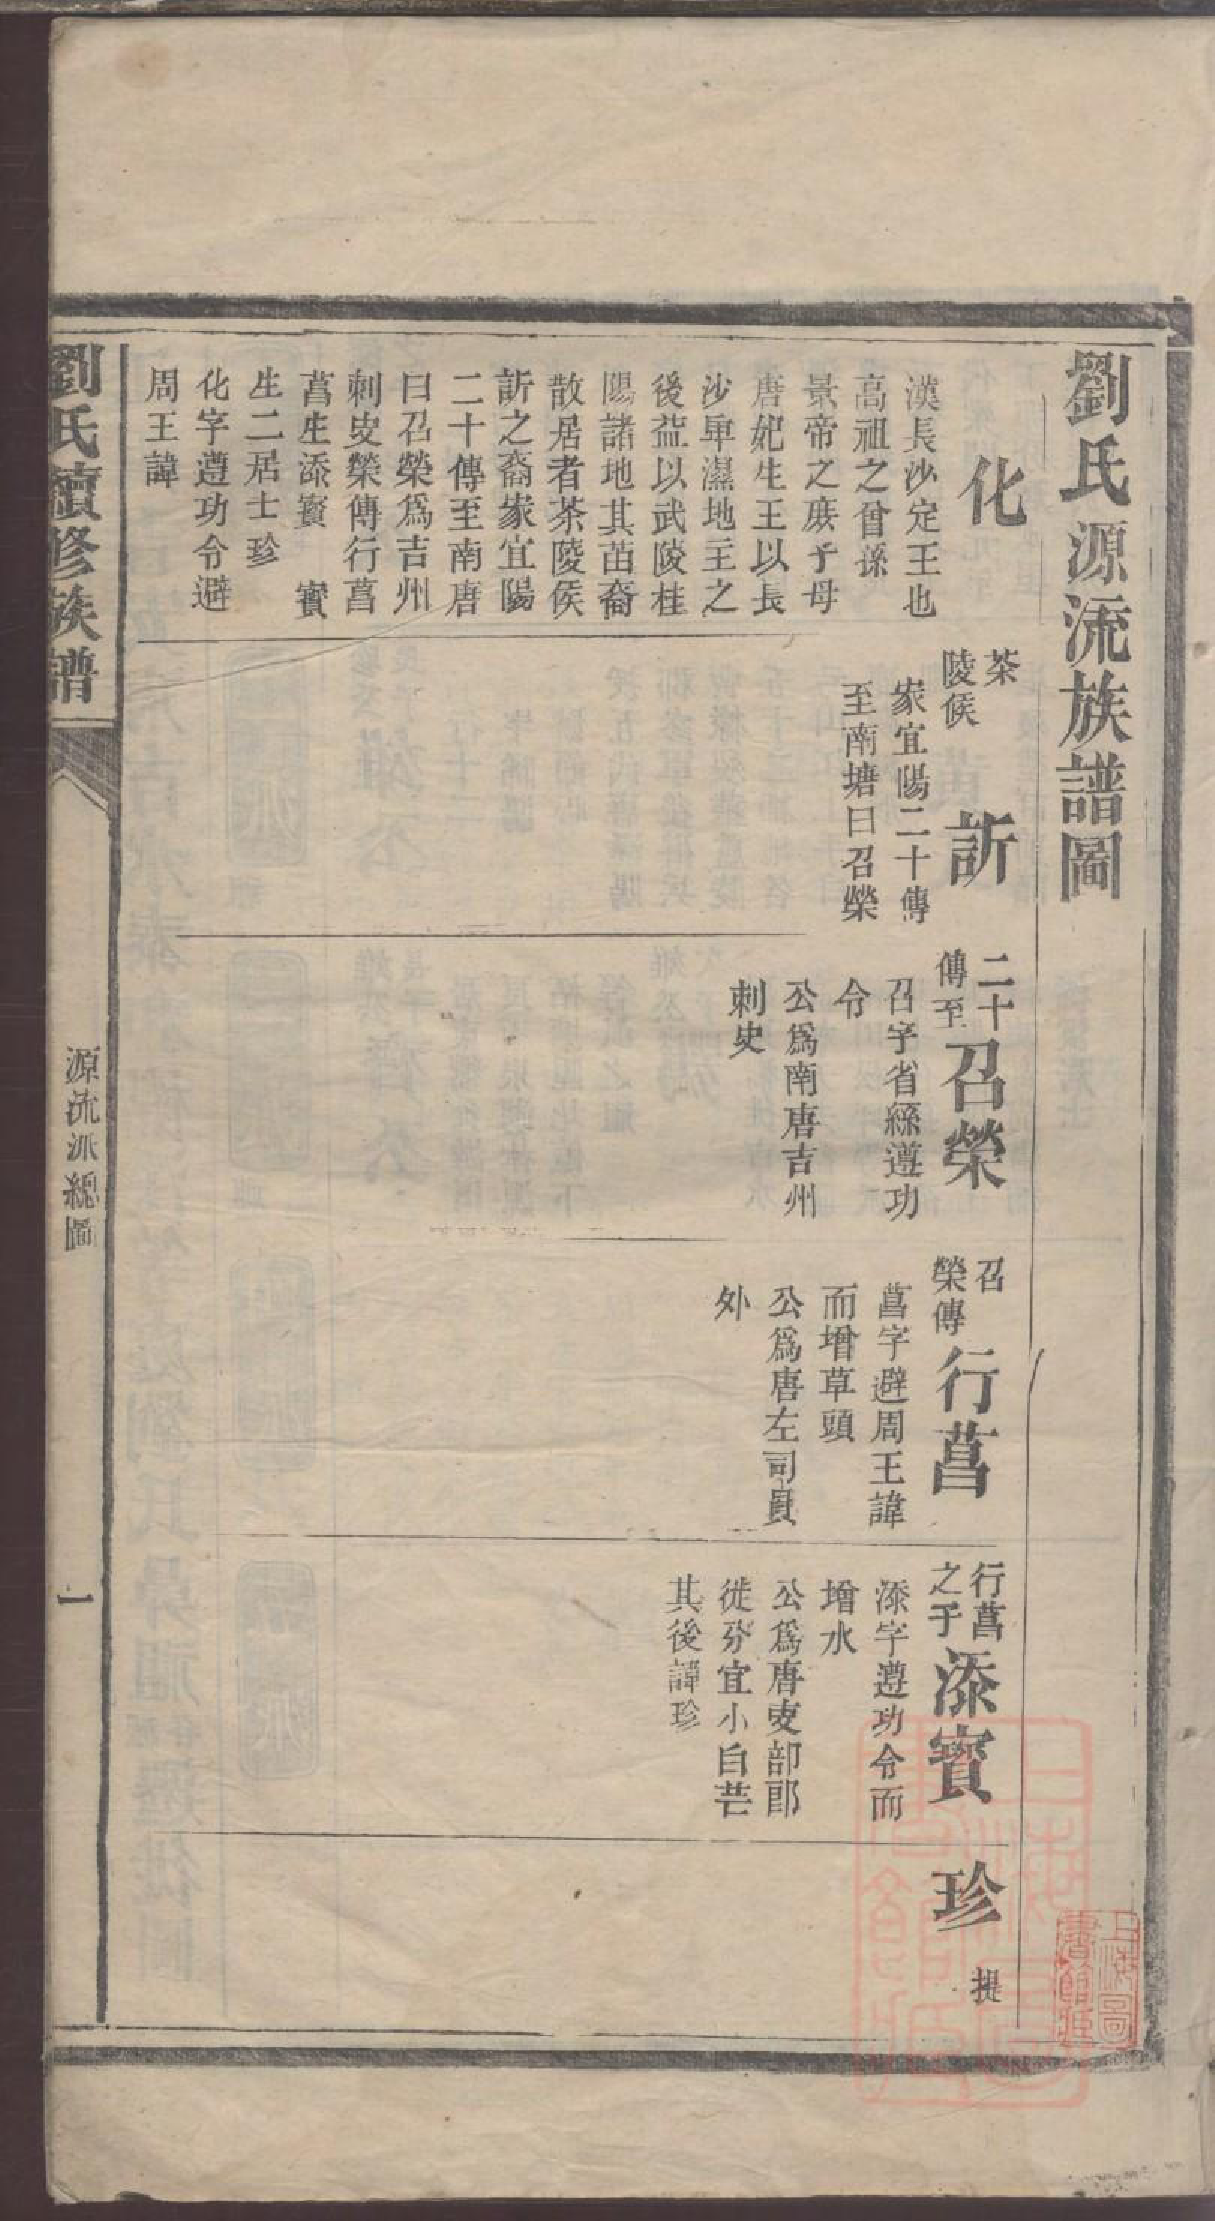 劉氏源流族譜圖
化
漢長沙定王也
高祖之曾孫
景帝之庶子母
唐妃生王以長
沙卑濕地王之
後益以武陵桂
陽諸地其苗裔
散居者茶陵侯
訢之裔家宜陽
二十傳至南唐
曰召榮爲吉州
刺史榮傳行菖
菖生添賓 賓
生二居士珍
化字遵功令避
周王諱
茶
陵侯
訢
家宜陽二十傳
至南塘曰召榮
二十
傳至
召榮
召字省絲遵功
令
公爲南唐吉州
刺史
召
榮傳
行菖
菖字避周王諱
而增草頭
公爲唐左司員
外
行菖
之子
添賓
添字遵功令而
增水
公爲唐吏部郎
徙分宜小自芒
其後諱珍
珍
提
劉氏續修族譜
源流派總圖
一
上海圖
書館藏